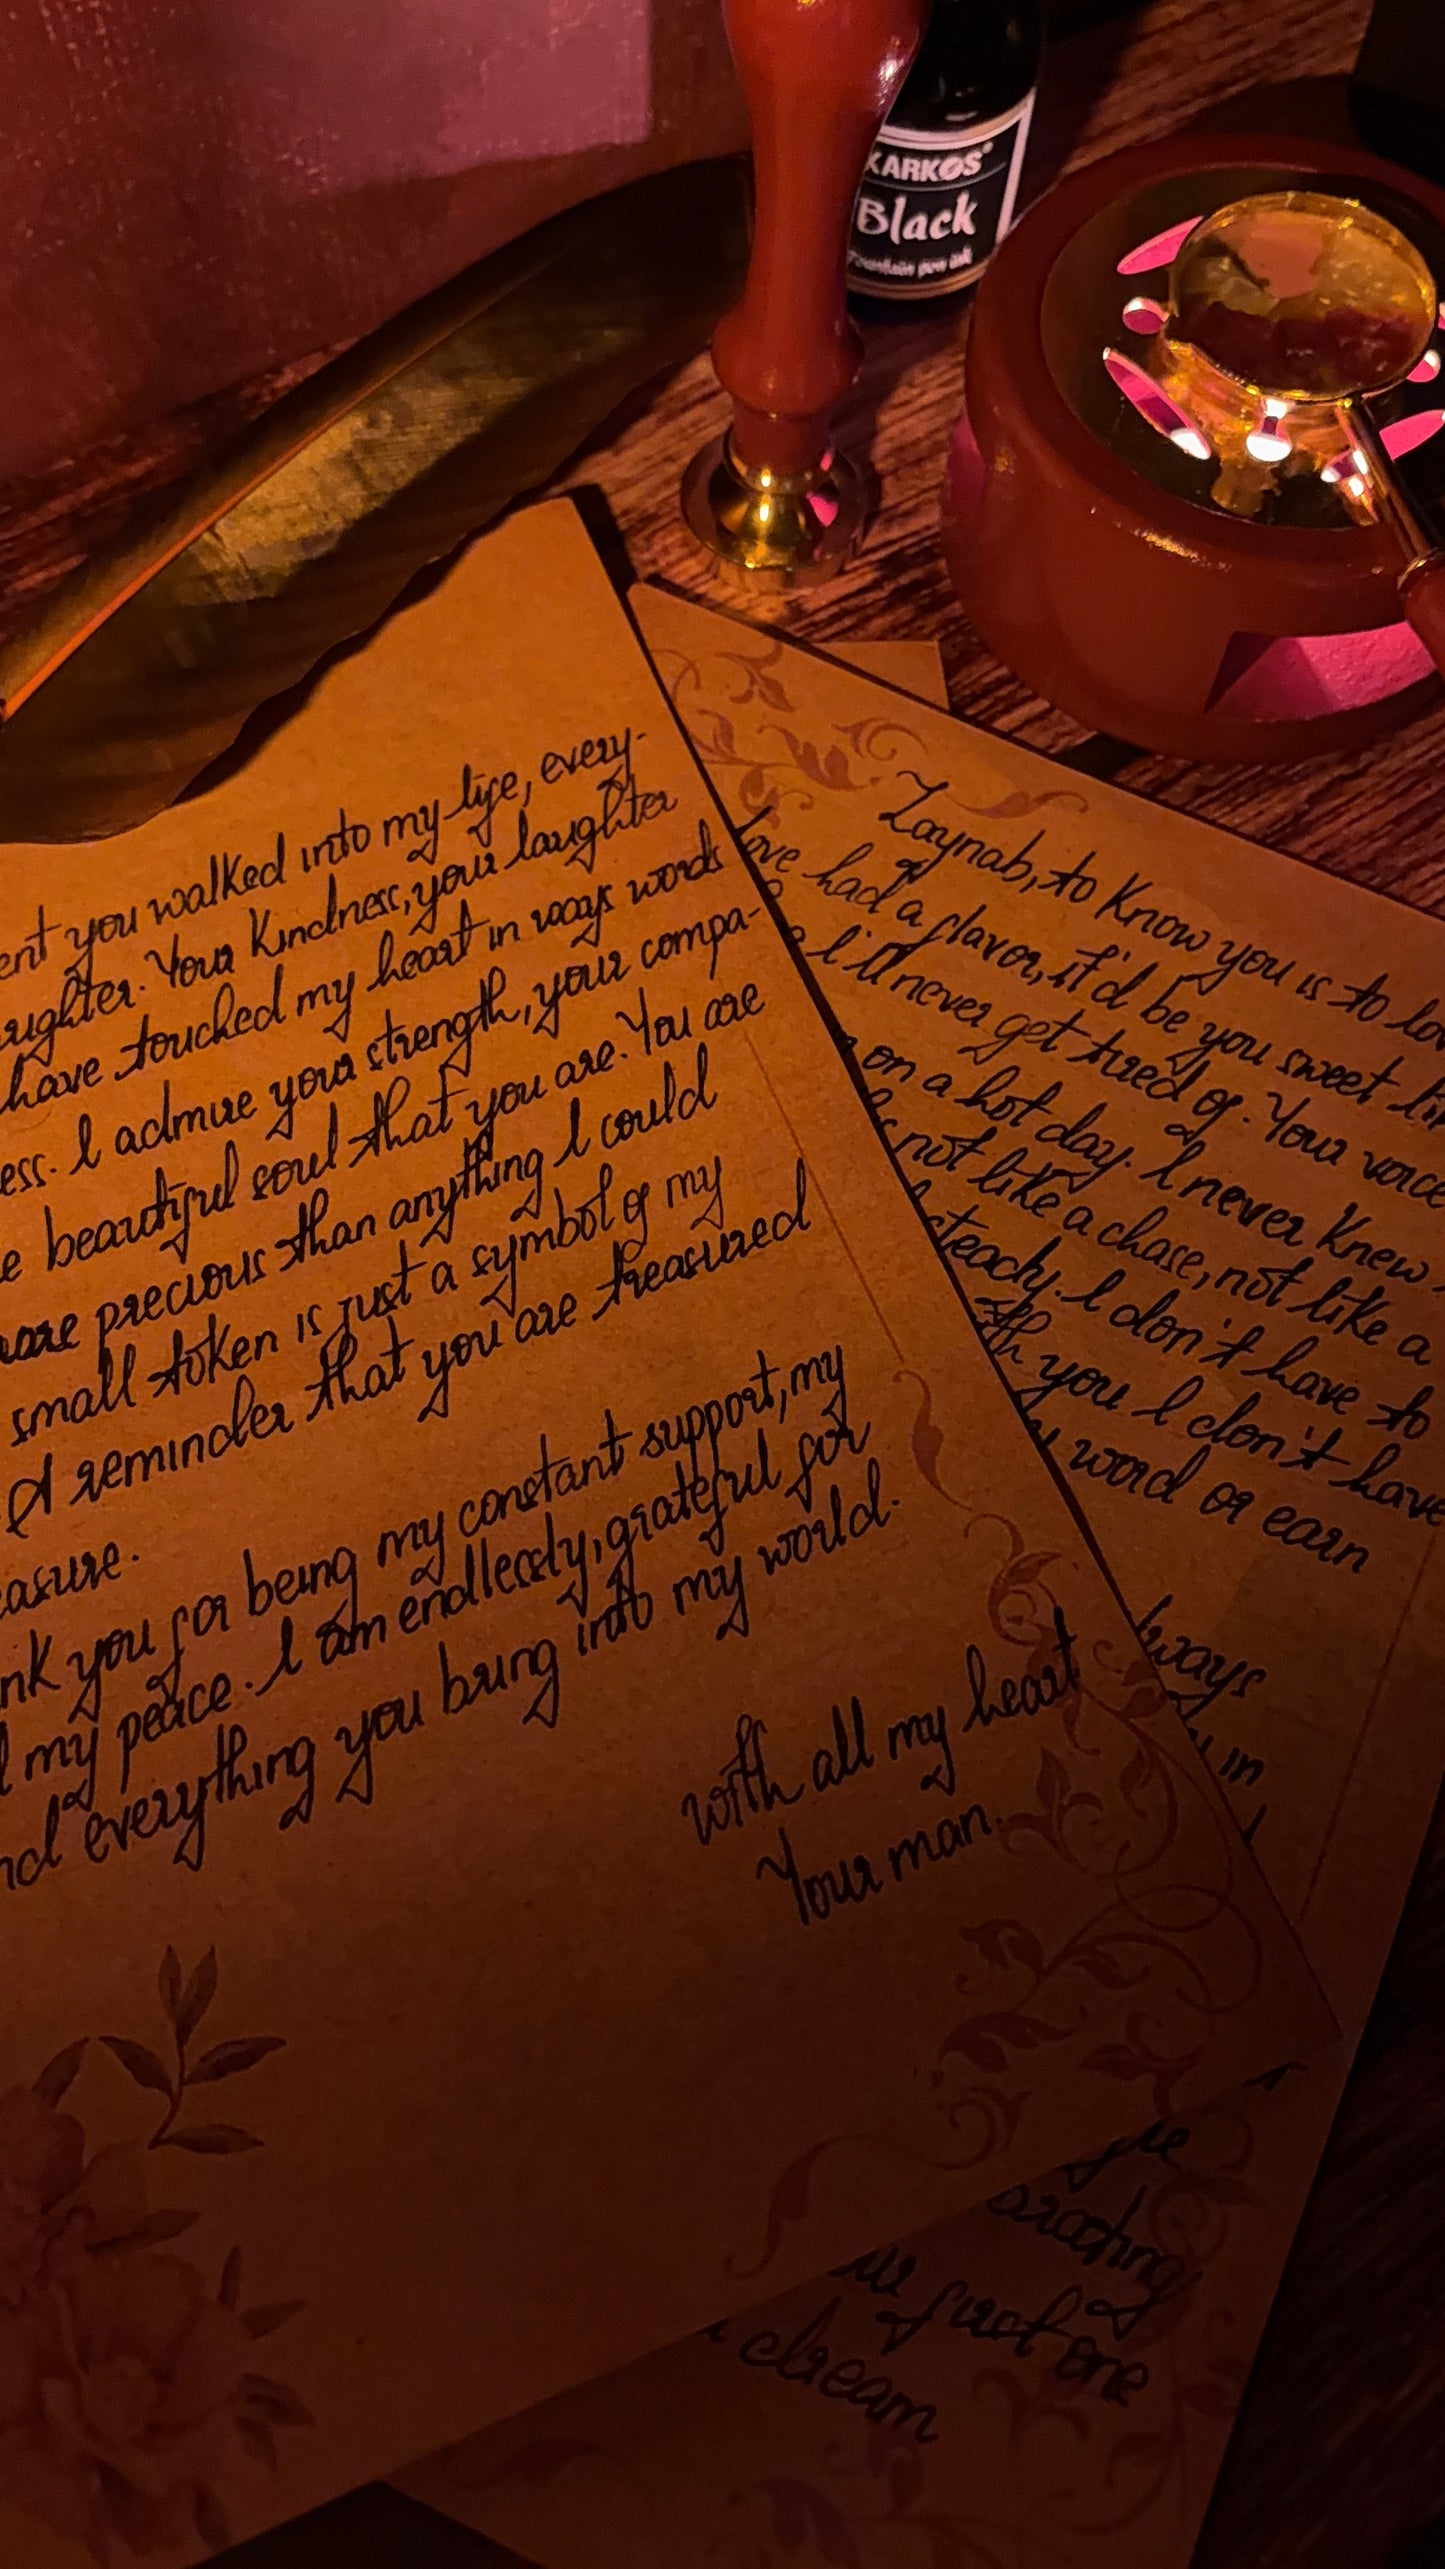 KARKØS
Black
Fountain pen ink
you walked into my life, every-
Your Kindness, your laughter
have touched my heart in ways words
I admire your strength, your compa-
beautiful soul that you are. You are
precious than anything I could
small token is just a symbol of my
A reminder that you are treasured
you for being my constant support, my
my peace. I am endlessly, grateful for
everything you bring into my world.
with all my heart
Your man.
Zaynab, to Know you is to
love had a flavor, it'd be you sweet
I'll never get tired of. Your voice
on a hot day. I never Knew
not like a chase, not like a
steady. I don't have to
you I don't have
word or earn
in
first one
dream